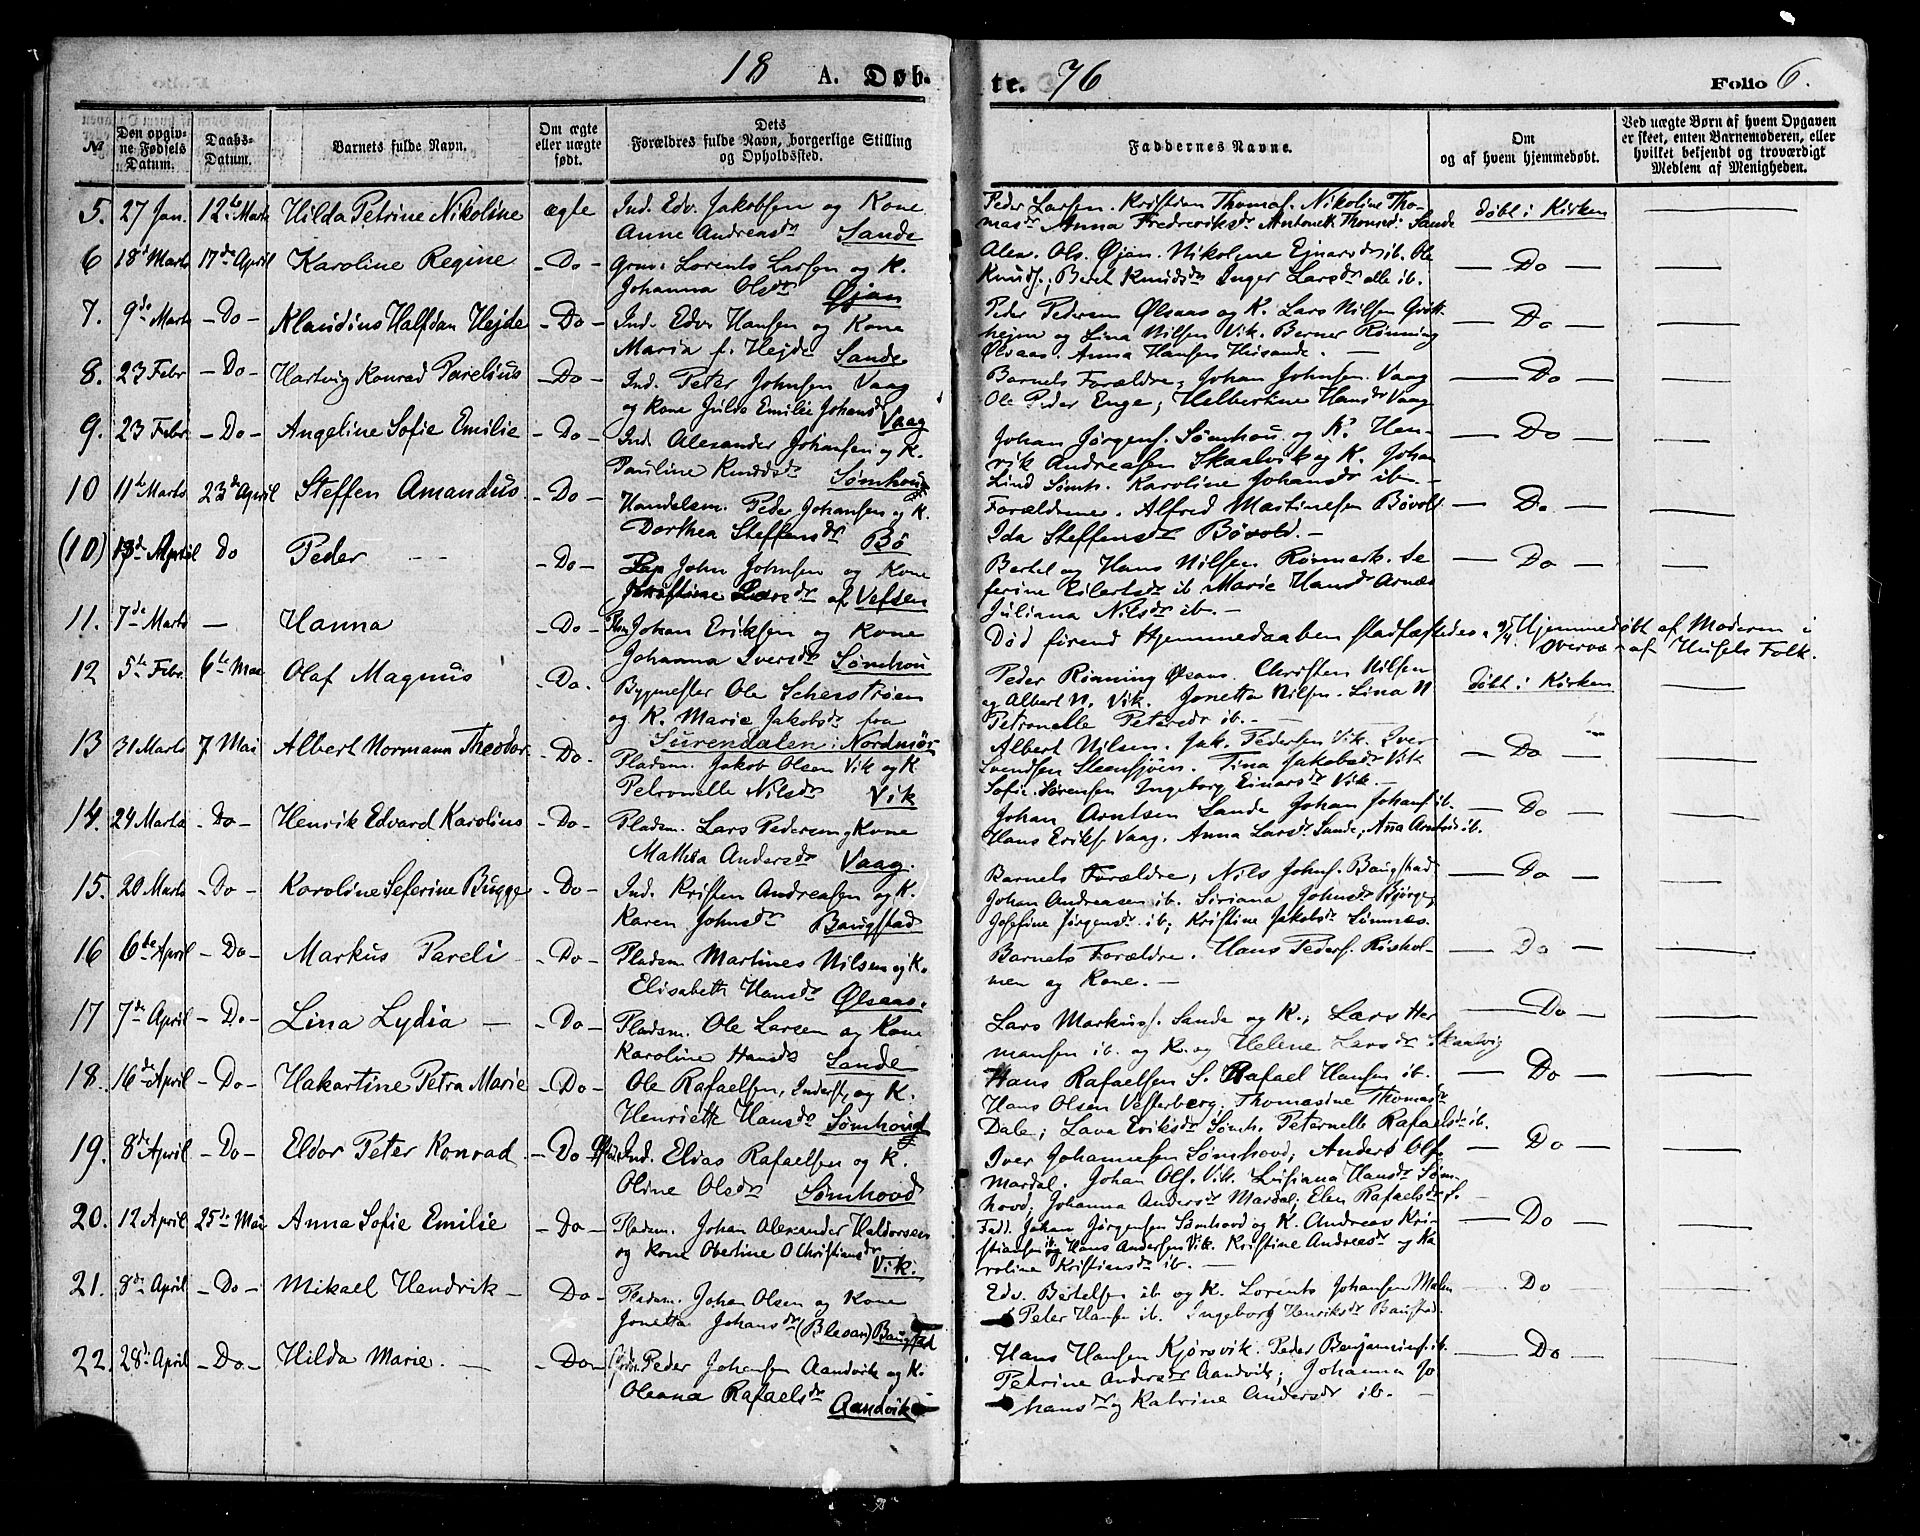 18 A. Døb- te. 76 Folio 6.
№
Den opgivne Fødsels Datum.
Daabs-Datum.
Barnets fulde Navn.
Om ægte eller uægte født.
Dets Forældres fulde Navn, borgerlige Stilling og Opholdssted.
Faddernes Navne.
Om og af hvem hjemmedøbt.
Ved uægte Børn af hvem Opgaven er skeet, enten Barnemoderen, eller hvilket bekjendt og troværdigt Medlem af Menigheden.
5. 27 Jan. 12te Marts Hilda Petrine Nikoline ægte Ind. Edv. Jakobsen og Kone
Anne Andreasdr Sande
Peder Larsen. Kristian Thomas. Nikoline Tho-
masdr Anna Frederiksdr Antonette Thomasd: Sande
døbt i Kirken
6 18de Marts 17de April Karoline Regine - Do - Grm. Lorents Larsen og K.
Johanna Olsdr Øjan
Alex. Ols. Øjan. Nikoline Ejnarsdr ib. Ole
Knuds.; Beret Knudsdr Inger Larsdr alle ib.
Do
7. 9de Marts - Do - Klaudius Halfdan Hejde - Do - Ind. Edv. Hansen og Kone
Maria f. Hejde Sande.
Peder Pedersen Ølsaas og K. Lars Nilsen Grøt-
hejm og Lina Nilsen Vik. Berner Rønning
Ølsaas. Anna Hansen Husande.
Do
8. 23 Febr - Do - Hartvig Konrad Parelius - Do - Ind. Peter Johnsen Vaag
og Kone Julds Emilie Johansdr Vaag
Barnets Forældre; Johan Johnsen. Vaag
Ole Peder Enge; Helbertine Hansdr Vaag
Do
9. 23 Febr. - Do - Angeline Sofie Emilie - Do - Ind. Alexander Johansen og K.
Pauline Knudsdr Sømhou
Johan Jørgens. Sømhou og K. Hen-
rik Andreasen Skaalvik og K. Johan
Lind Sømh. Karoline Johansdr ib.
Do
10 11te Marts 23de April Steffen Amandus - Do - Handelsm. Peder Johansen og K.
Dorthea Steffensdr Bø
Forældrene. Alfred Mastinesen Bøvold
Ida Steffensdr Bøvold.
Do
(10) 13de April Do Peder - Do - Lap John Johnsen og Kone
Kristine Larsdr af Vefsen
Bertel og Hans Nilsen Rønmark. Se-
ferine Eilertsdr ib Marie Hansdr Arnæs
Juliana Nilsdr ib.
Do
11. 7de Marts — Hanna - Do - Johan Eriksen og Kone
Johanna Iversdr Sømhou
Død førend Hjemmedaaben stadfæstedes. Hjemmedøbt af Moderen i
Overvær af Husets Folk.
12 5te Febr. 6te Mai Olaf Magnus - Do - Bygmester Ole Scherstrøen
og K. Marie Jakobsdr fra
Surendalen i Nordmør
Peder Rønning Øsaas. Christen Nilsen
og Albert N. Vik. Jonetta Nilsen. Lina N
Petronelle Petersdr ib.
døbt i Kirken
13 31 Marts 7 Mai Albert Normann Theodor - Do - Pladsm. Jakob Olsen Vik og K
Petronelle Nilsdr Vik
Albert Nilsen. Jak. Pedersen Vik. Iver
Svendsen Steensjøen. Tina Jakobsdr Vik
Sofie Sørensen Ingeborg Einarsdr Vik.
Do
14. 24 Marts - Do - Henrik Edvard Karolius - Do - Pladsm. Lars Pedersen og Kone
Mathea Andersdr Vaag.
Johan Arntsen Sande Johan Johans ib.
Hans Eriks. Vaag. Anna Larsdr Sande; Ana Arntsd ib.
Do
15. 20 Marts - Do - Karoline Seferine Bugge - Do - Ind. Kristen Andreasen og K.
Karen Johnsdr Baugstad
Barnets Forældre; Nils Johns. Baugstad
Johan Andreasen ib. Siriana Johnsdr Bjørge,
Josefine Jørgensdr ib; Kristine Jakobsdr Sømnes.
Do
16 6te April - Do - Markus Pareli - Do - Pladsm Martines Nilsen og K.
Elisabeth Hansdr Ølsaas.
Barnets Forældre. Hans Peders. Risshol-
men og Kone.
Do
17 7de April - Do - Lina Lydia - Do - Pladsm. Ole Larsen og Kone
Karoline Hansdr Sande
Lars Markuss. Sande og K.; Lars Her
mansen ib. og K. og Helene Larsdr Skaalvig
Do
18. 16de April - Do - Hakartine Petra Marie - Do - Ole Rafaelsen, Inderst, og K.
Henriette Hansdr Sømhovd
Hans Rafaelsen S. Rafael Hansen ib.
Hans Olsen Vesterberg; Thomasine Thomasdr
Dale; Lava Eriksdr Sømh. Peternelle Rafaelsdr ib.
Do
19. 8de April - Do - Eldor Peter Konrad - Do Ind. Elias Rafaelsen og K.
Oline Olsdr Sømhovd
Iver Johannesen Sømhovd; Anders Ols.
Mardal. Johan Ols. Vik. Lusiana Hansdr Søm-
hovd; Johanna Andersdr Mardal; Elen Rafaelsdr S.
Do
20. 12 April 25de Mai Anna Sofie Emilie - Do - Pladsm. Johan Alexander Haldorsen
og Kone Obertine O Christiansdr
Vik.
Fadd. Johan Jørgensen Sømhovd og K. Andreas Kri-
stiansen ib. og Hans Andersen Vik. Kristine Andreasdr og Ka
roline Kristiansdr ib.
Do
21. 8de April - Do - Mikael Hendrik - Do - Pladsm. Johan Olsen og Kone
Jonetta Johansdr (Blesan) Baugstad
Edv. Bertelsen ib og K. Lorents Johansen Malen
Peter Hansen ib. Ingeborg Henriksdr Baugstad.
Do
22. 28de April - Do - Hilda Marie. - Do - Peder Johansen Aandvik og K.
Oleana Rafaelsdr
Aandvik
Hans Hansen Kjørsvik. Peder Benjamins. ib.
Petrine Andersdr Aandvik; Johanna Jo
hansdr og Katrine Andersdr ib.
Do